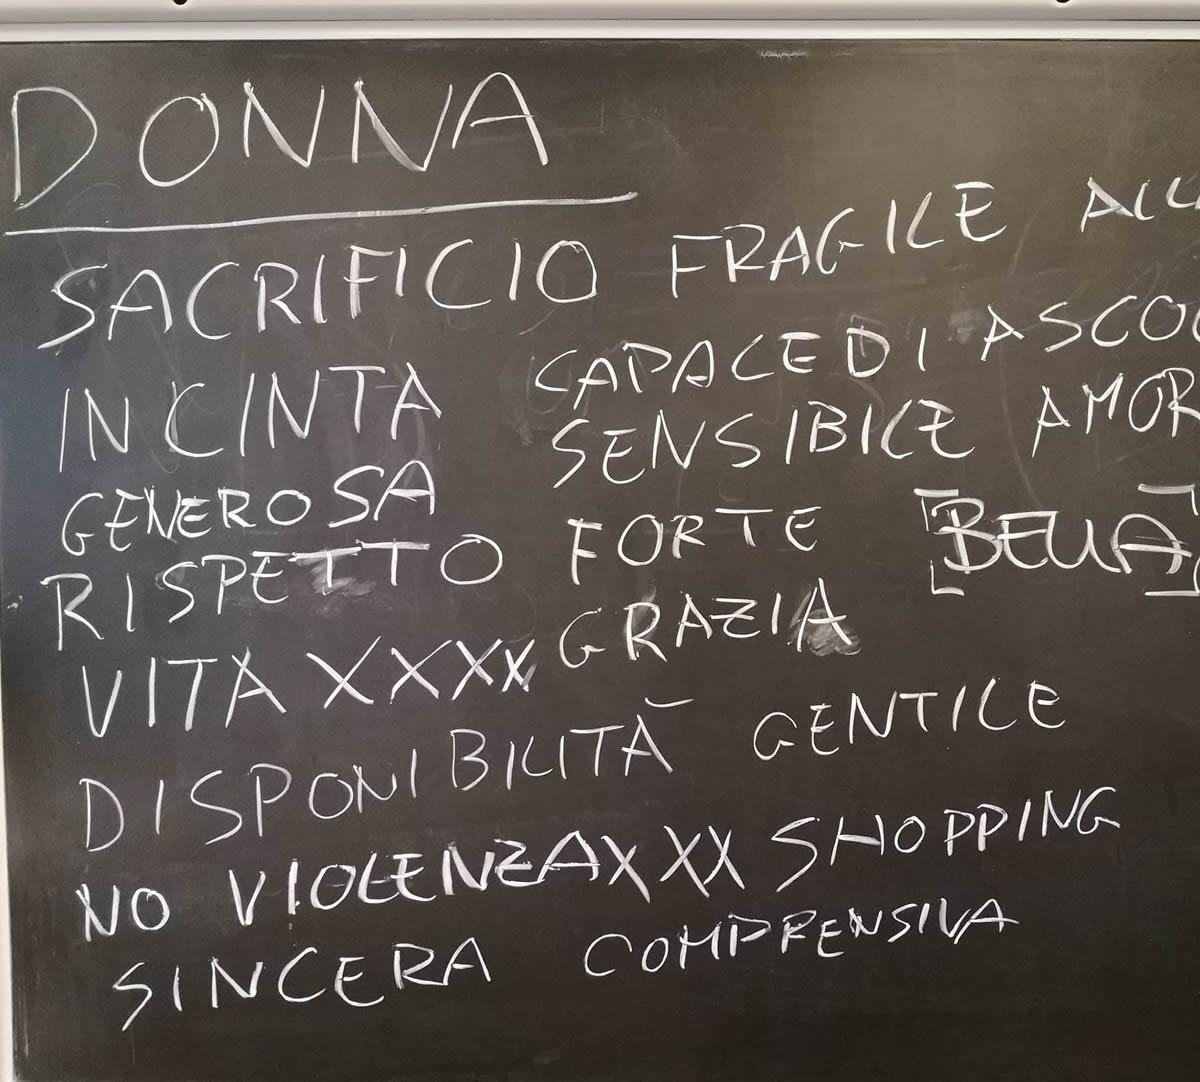 DONNA
SACRIFICIO FRAGILE
INCINTA CAPACE DI
GENEROSA SENSIBILE
RISPETTO FORTE [BELLA]
VITA XXXX GRAZIA
DISPONIBILITÀ GENTILE
NO VIOLENZA XXX SHOPPING
SINCERA COMPRENSIVA